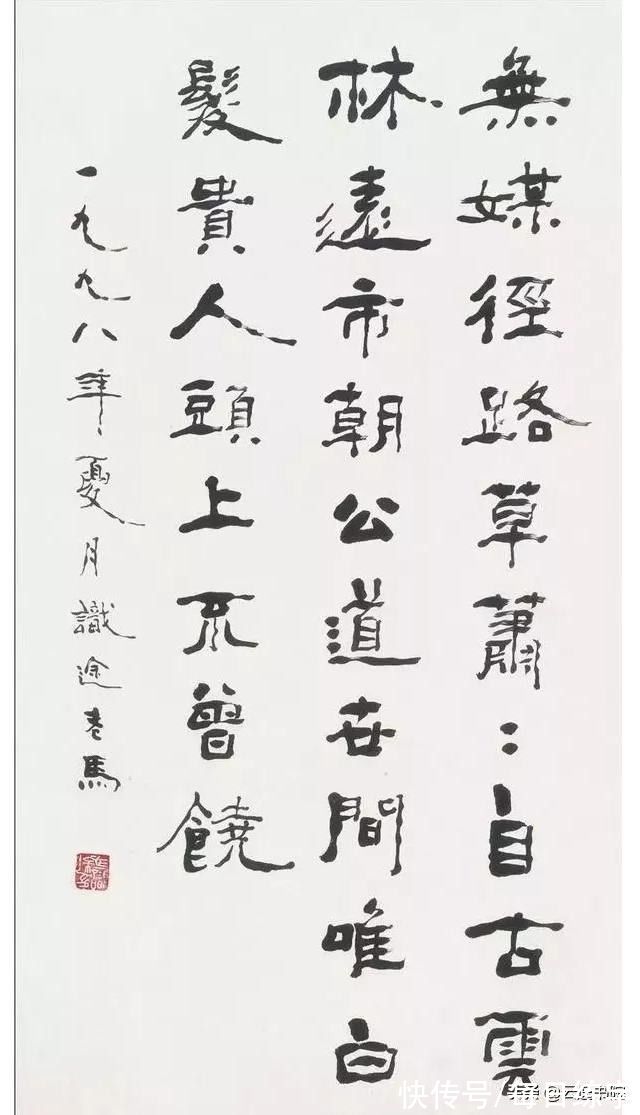 無媒徑路草蕭：自古雲
林遠市朝公道世間唯白
髮貴人頭上不曾饒
一九九八年夏月識途老馬
快传号/每日练字
头条@云庭书院